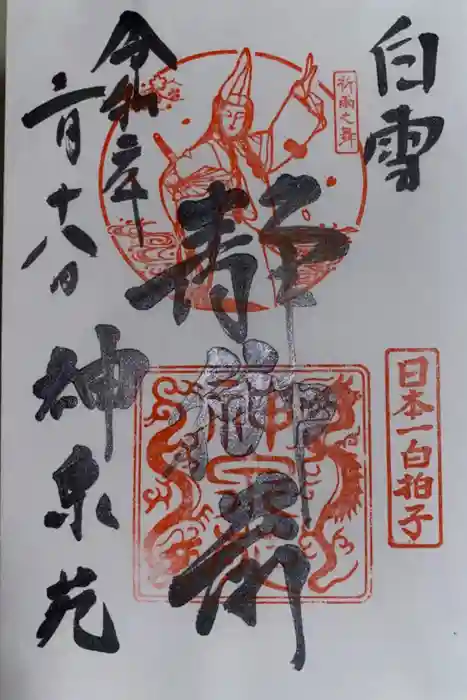 白雪
祈雨之舞
日本一白拍子
静御前
令和六年
二月十八日
神泉苑